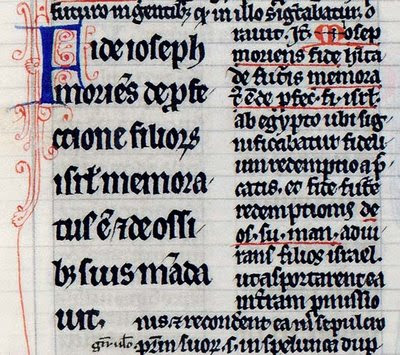 futuro in gentibꝫ q̄ in illo sig̅tabatur. o
Fide ioseph
moriēs de p̄fe
ctione filiorꝝ
isrl̄ memora
tus ē ⁊ de ossi
bꝫ suis māda
uit.
rauit. Itē Iosep
moriens fide h̄ita
de futīs memora
t̄ ē de pfec̄. fi. isrl̄.
ab egypto ubi sig
nificabatur fideli
um redemptio a p̄
catis. et fide futē
redemptionis de
os. su. man. adiu
rans filios israel.
ut asportarent ea
in terram pmissio
nis ⁊ reconderent ea in sepulcro
p̄rm̄ suorꝝ. s. in spelunca dup